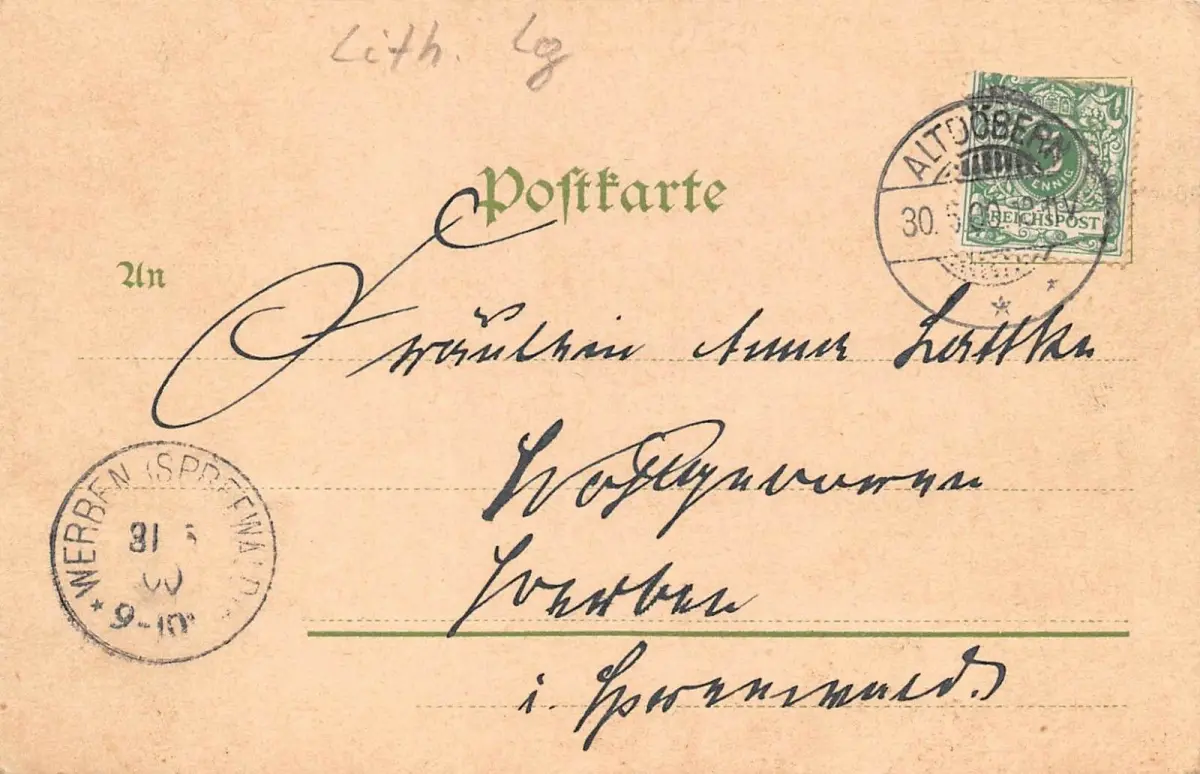 Lith. Lg
Postkarte
ALTDÖBERN
30. 00. V
PFENNIG
REICHSPOST
An
Fräulein Anna Lattke
Wohlgeboren
Werben
i. Spreewald.
WERBEN (SPREEWALD)
31 5
00
9-10